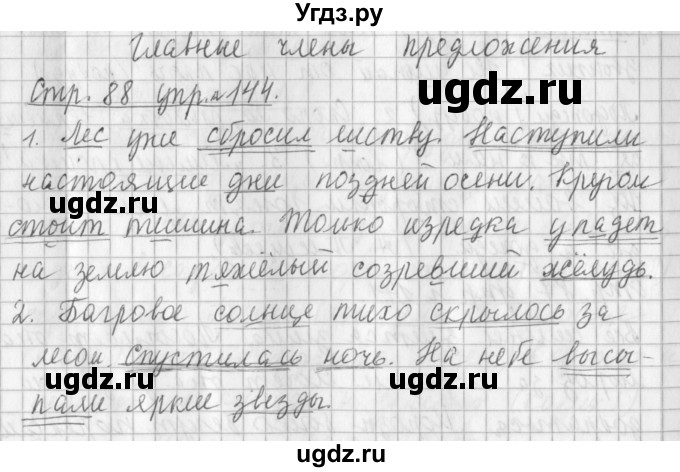 Угдз.ру
Главные члены предложения
Стр. 88 упр.№144.
1. Лес уже сбросил листву. Наступили
настоящие дни поздней осени. Кругом
стоит тишина. Только изредка упадёт
на землю тяжёлый созревший жёлудь.
2. Багровое солнце тихо скрылось за
лесом спустилась ночь. На небе высы-
пали яркие звёзды.
ugdz.ru
ugdz.ru
ugdz.ru
ugdz.ru
ugdz.ru
ugdz.ru
ugdz.ru
ugdz.ru
Угдз.ру